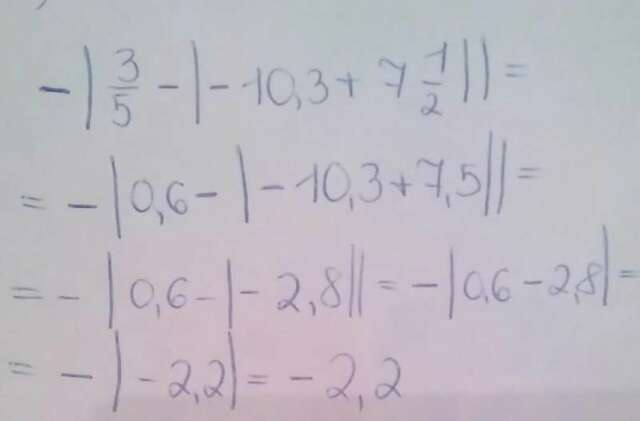 -|3/5 - |-10,3 + 7 1/2|| =
= -|0,6 - |-10,3 + 7,5|| =
= -|0,6 - |-2,8|| = -|0,6 - 2,8| =
= -|-2,2| = -2,2